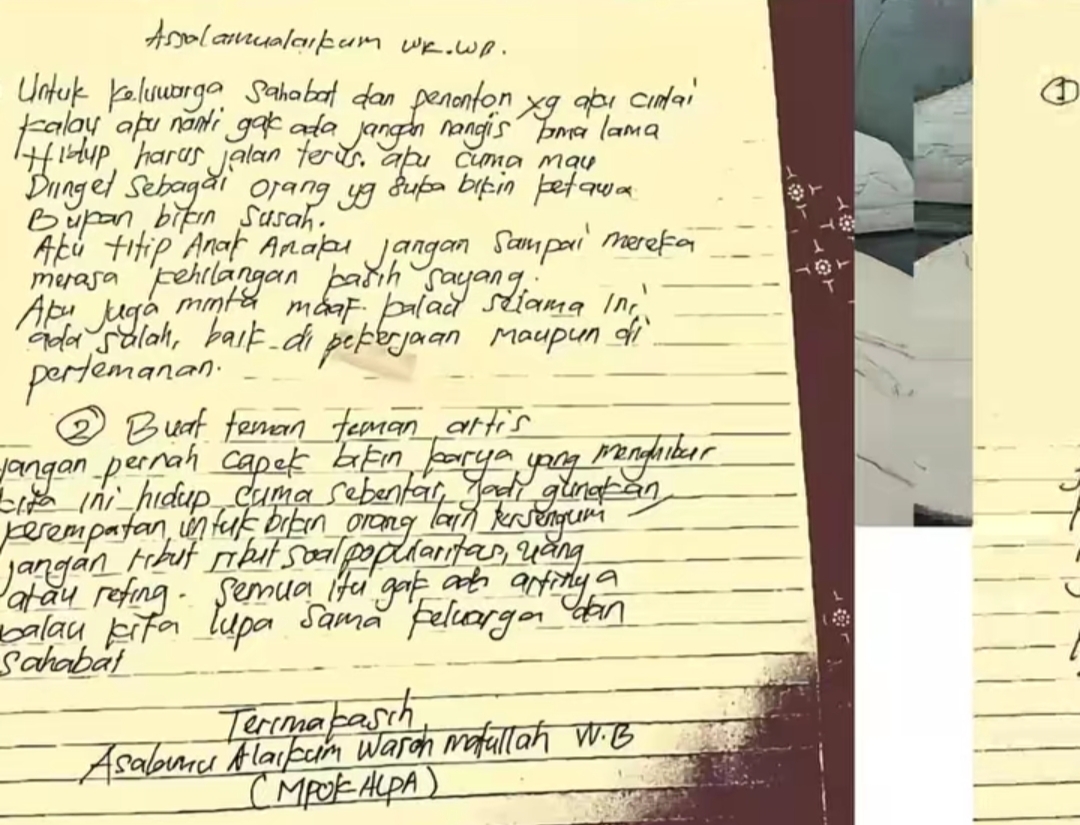 Assalamualaikum wr.wb.
Untuk keluwarga sahabat dan penonton yg aku cintai
kalau aku nanti gak ada jangan nangis lama lama
Hidup harus jalan terus. aku cuma mau
Diinget sebagai orang yg suka bikin ketawa
Bukan bikin susah.
Aku titip Anak Anaku jangan sampai mereka
merasa kehilangan kasih sayang.
Aku juga minta maaf kalau selama ini,
ada salah, baik di pekerjaan maupun di
pertemanan.
② Buat teman teman artis
jangan pernah capek bikin karya yang menghibur
kita ini hidup cuma sebentar, jadi gunakan
kesempatan untuk bikin orang lain tersengum
jangan ribut ribut soal popularitas, uang
atau reting. Semua itu gak ada artinya
kalau kita lupa sama keluarga dan
sahabat
Terimakasih
Asalamu Alaikum Warohmatullah W.B
(MPOK ALPA)
①